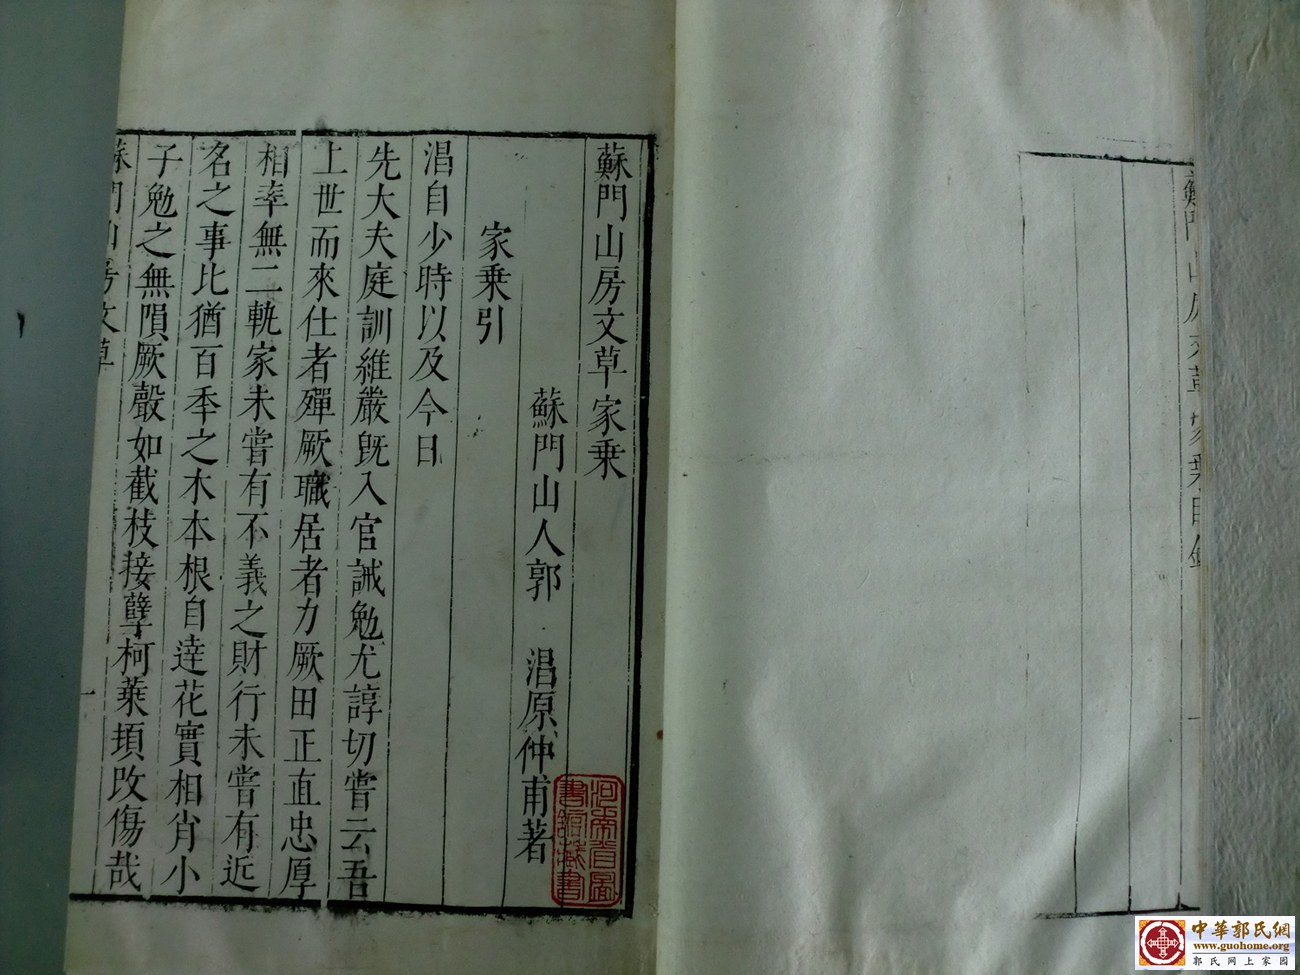 蘇門山房文草家乗
蘇門山人郭 淐原仲甫著
家乗引
淐自少時以及今日
先大夫庭訓維嚴旣入官誡勉尤諄切嘗云吾
上世而來仕者殫厥職居者力厥田正直忠厚
相率無二軌家未嘗有不義之財行未嘗有近
名之事比猶百年之木本根自達花實相肖小
子勉之無隕厥聲如截枝接孽柯葉頓改傷哉
蘇門山房文草
一
河南省圖
書館藏書
蘇門山房文草家乗目錄
一
中華郭氏網
www.guohome.org
郭氏网上家园